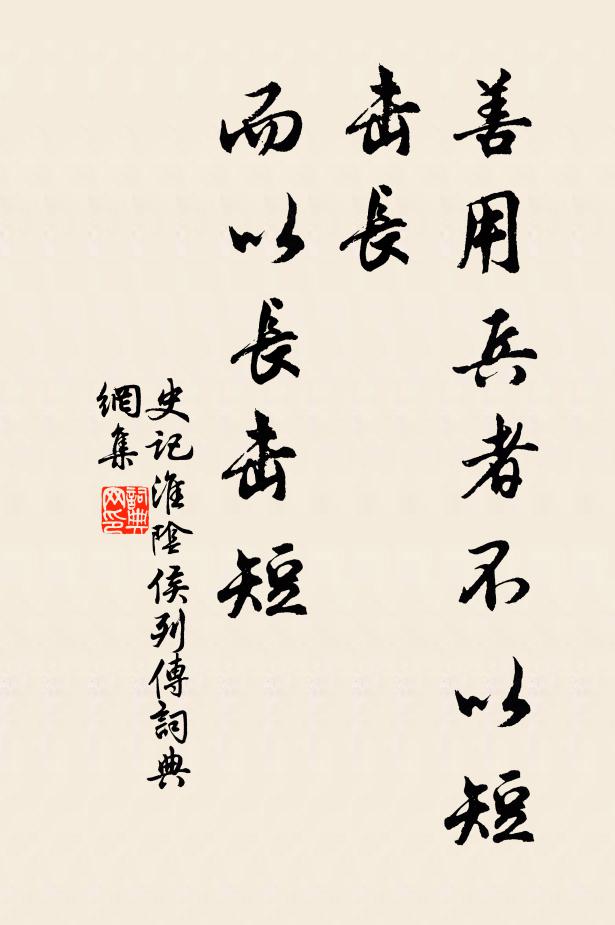 善用兵者不以短
击長
而以長击短
史记淮陰侯列傳詞典
網集
詞典网印